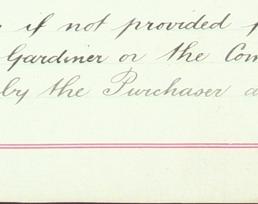 if not provided
Gardiner or the Com
by the Purchaser a